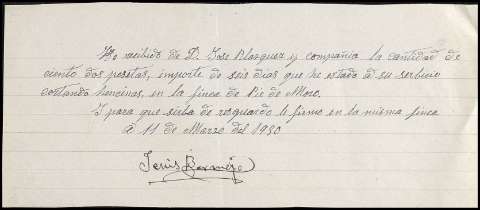 He recibido de D. Jose Blazquez y compañia la cantidad de
ciento dos pesetas, importe de seis dias que he estado á su serbicio
cortando hencinas, en la finca de Pie de Moro.
Y para que sirba de resguardo le firmo en la misma finca
á 11 de Marzo del 1930